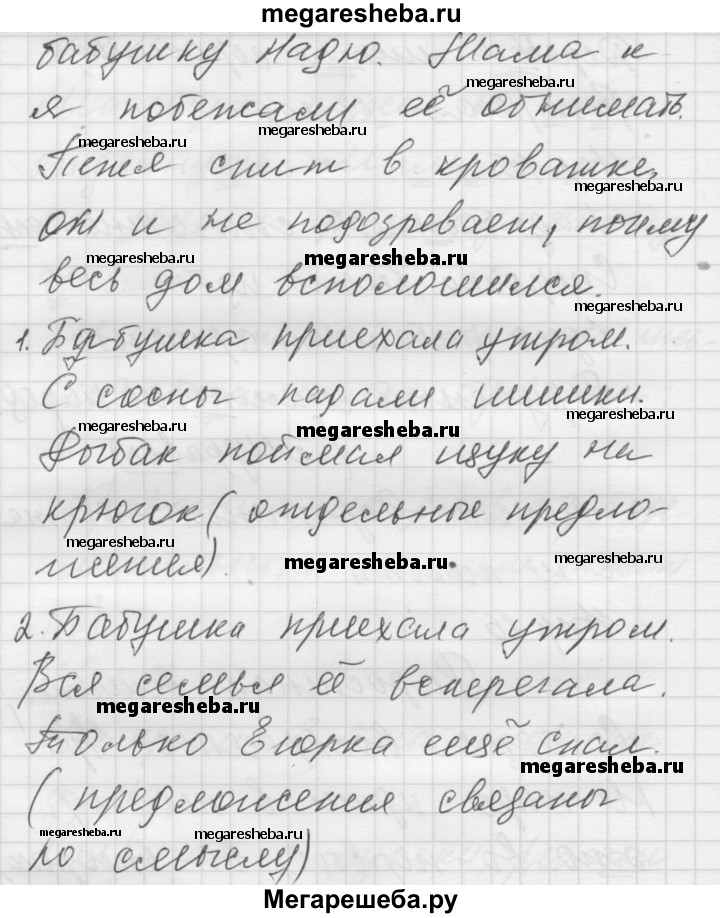 megaresheba.ru
бабушку Надю. Мама и
megaresheba.ru
я побежали её обнимать.
megaresheba.ru megaresheba.ru
Женя спит в кроватке,
megaresheba.ru
он и не подозревает, почему
megaresheba.ru megaresheba.ru
весь дом всполошился.
megaresheba.ru
1. Бабушка приехала утром.
megaresheba.ru
С сосны падали шишки.
megaresheba.ru megaresheba.ru megaresheba.ru
Рыбак поймал щуку на
крючок (отдельные предло-
megaresheba.ru megaresheba.ru megaresheba.ru
жения).
2. Бабушка приехала утром.
Вся семья её встречала.
megaresheba.ru
Только Егорка ещё спал.
megaresheba.ru
(предложения связаны
megaresheba.ru megaresheba.ru
по смыслу)
Мегарешеба.ру